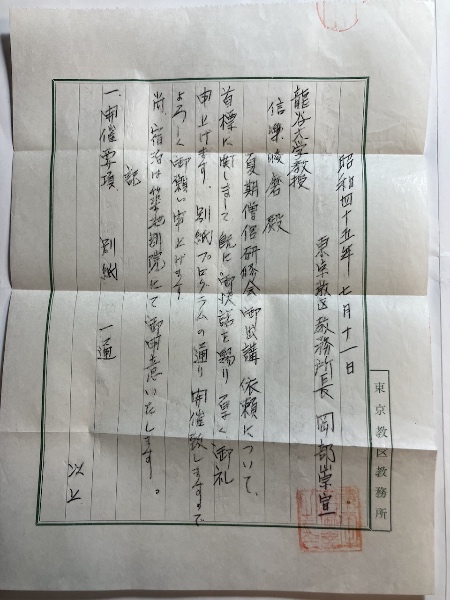 昭和四十五年七月十一日
東京教区教務所長 岡部崇宣
龍谷大学教授
信楽峻麿 殿
夏期僧侶研修会御出講依頼について、
首標に関しまして既に御快諾を賜り厚く御礼
申上げます。別紙プログラムの通り開催致しますので
よろしく御願い申上げます
尚、宿泊は築地別院にて御用意いたします。
記
一、開催要項 別紙 一通
以上
東京教区教務所